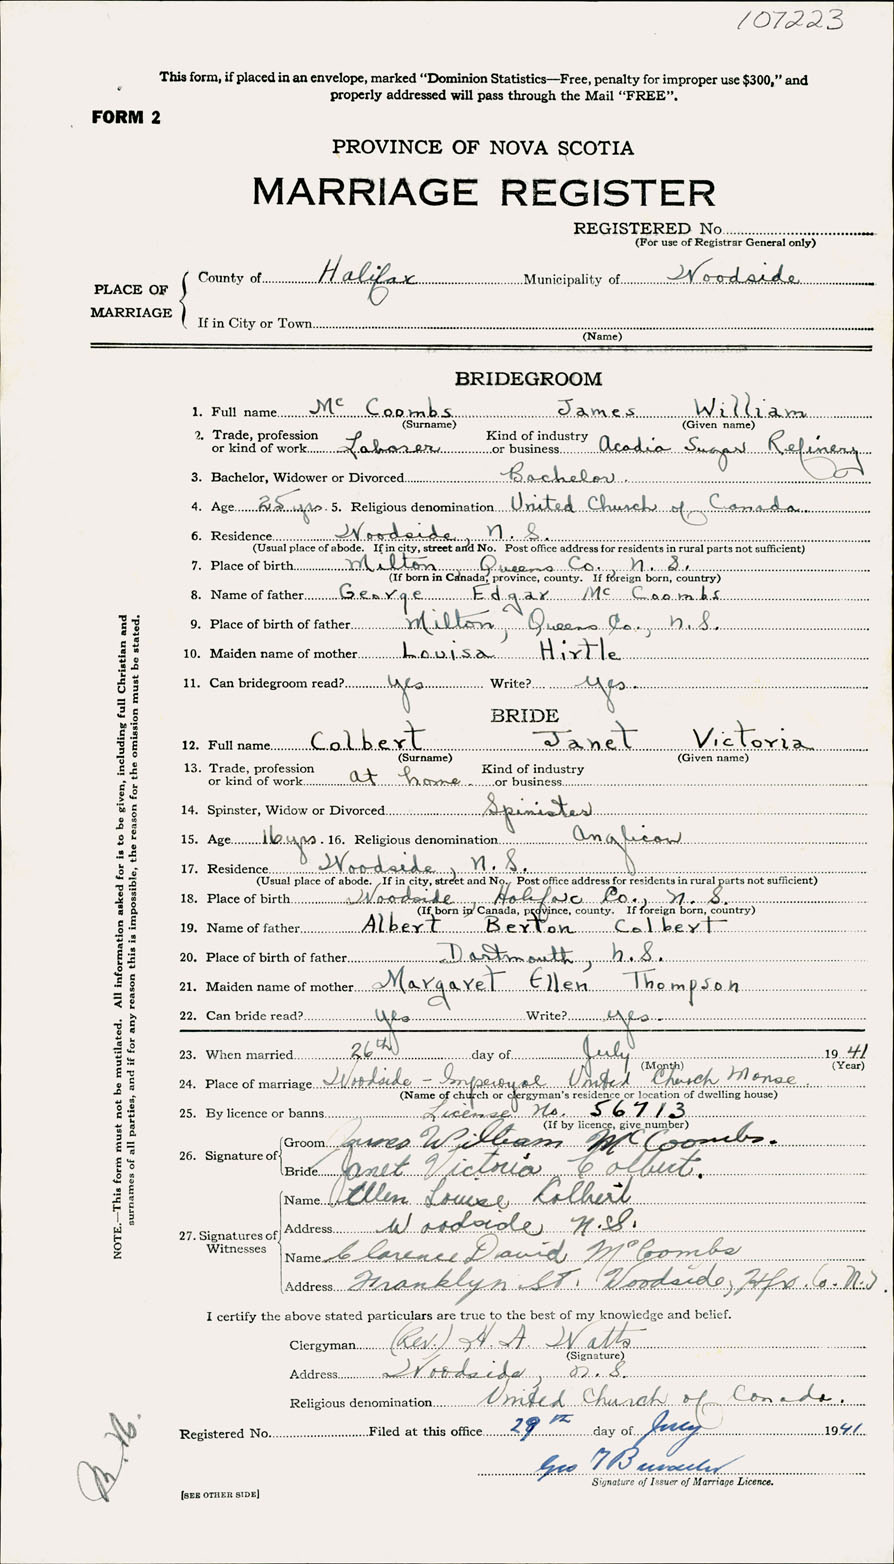 107223
This form, if placed in an envelope, marked “Dominion Statistics—Free, penalty for improper use $300,” and
properly addressed will pass through the Mail “FREE”.
FORM 2
PROVINCE OF NOVA SCOTIA
MARRIAGE REGISTER
REGISTERED No.
(For use of Registrar General only)
PLACE OF MARRIAGE
County of Halifax Municipality of Woodside
If in City or Town
(Name)
BRIDEGROOM
1. Full name Mc Coombs James William
(Surname) (Given name)
2. Trade, profession or kind of work Laborer Kind of industry or business Acadia Sugar Refinery
3. Bachelor, Widower or Divorced Bachelor
4. Age 25 yrs. 5. Religious denomination United Church of Canada
6. Residence Woodside, N. S.
(Usual place of abode. If in city, street and No. Post office address for residents in rural parts not sufficient)
7. Place of birth Milton, Queens Co., N. S.
(If born in Canada, province, county. If foreign born, country)
8. Name of father George Edgar Mc Coombs
9. Place of birth of father Milton, Queens Co., N.S.
10. Maiden name of mother Louisa Hirtle
11. Can bridegroom read? yes Write? yes.
BRIDE
12. Full name Colbert Janet Victoria
(Surname) (Given name)
13. Trade, profession or kind of work at home. Kind of industry or business
14. Spinster, Widow or Divorced Spinister
15. Age 16 yrs. 16. Religious denomination Anglican
17. Residence Woodside, N. S.
(Usual place of abode. If in city, street and No. Post office address for residents in rural parts not sufficient)
18. Place of birth Woodside, Halifax Co., N. S.
(If born in Canada, province, county. If foreign born, country)
19. Name of father Albert Berton Colbert
20. Place of birth of father Dartmouth, N.S.
21. Maiden name of mother Margaret Ellen Thompson
22. Can bride read? yes Write? yes.
23. When married 26th day of July 1941
(Month) (Year)
24. Place of marriage Woodside - Imperoyal United Church Manse.
(Name of church or clergyman's residence or location of dwelling house)
25. By licence or banns License No. 56713
(If by licence, give number)
26. Signature of
Groom James William McCoombs.
Bride Janet Victoria Colbert.
27. Signatures of Witnesses
Name Ellen Louise Colbert
Address Woodside N.S.
Name Clarence David McCoombs
Address Franklyn St. Woodside, Hfx. Co. N.S.
I certify the above stated particulars are true to the best of my knowledge and belief.
Clergyman (Rev.) H. A. Watts
(Signature)
Address Woodside, N. S.
Religious denomination United Church of Canada.
Registered No. Filed at this office 29th day of July 1941
Geo T
Signature of Issuer of Marriage Licence.
[SEE OTHER SIDE]
NOTE.—This form must not be mutilated. All information asked for is to be given, including full Christian and
surnames of all parties, and if for any reason this is impossible, the reason for the omission must be stated.